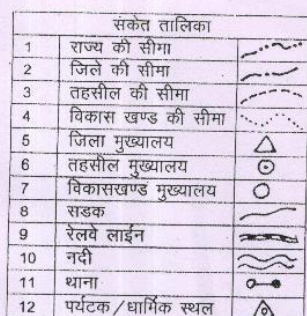 संकेत तालिका
1 राज्य की सीमा
2 जिले की सीमा
3 तहसील की सीमा
4 विकास खण्ड की सीमा
5 जिला मुख्यालय
6 तहसील मुख्यालय
7 विकासखण्ड मुख्यालय
8 सडक
9 रेलवे लाईन
10 नदी
11 थाना
12 पर्यटक/धार्मिक स्थल